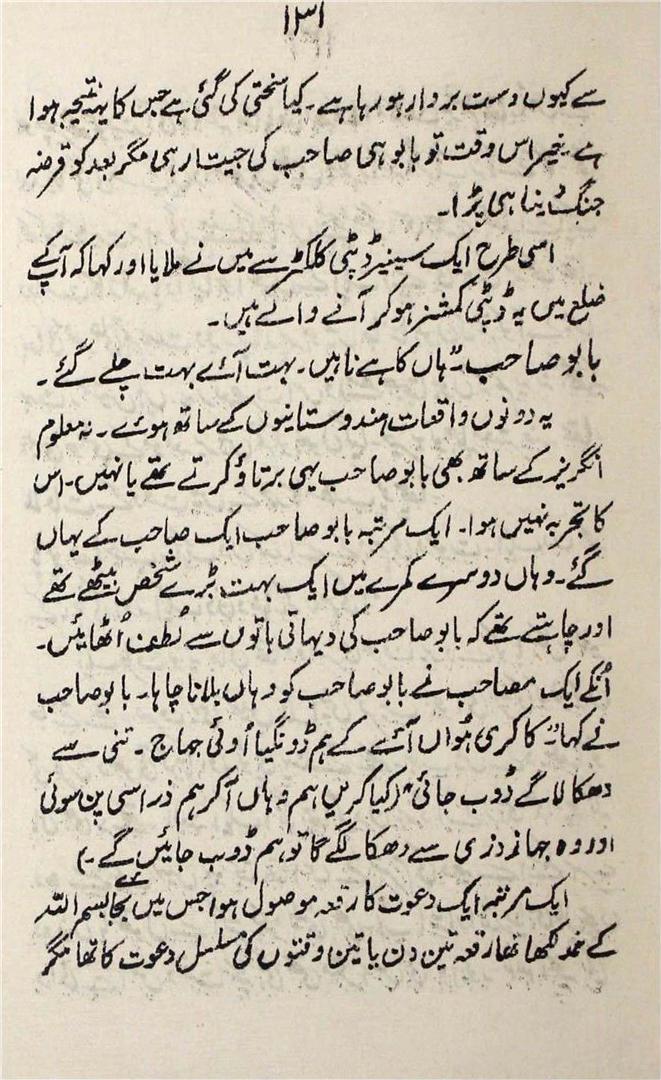 ۱۳۱
سے کیوں دست بردار ہو رہا ہے۔ کیا سختی کی گئی ہے جس کا یہ نتیجہ ہوا
ہے۔ خیر اس وقت تو بابو ہی صاحب کی جیت رہی مگر بعد کو قرضہ
جنگ دینا ہی پڑا۔
اسی طرح ایک سینیر ڈپٹی کلکٹر سے میں نے ملایا اور کہا کہ آپ کے
ضلع میں یہ ڈپٹی کمشنر ہو کر آنے والے ہیں۔
بابو صاحب۔ "ہاں کاہے ناہیں۔ بہت آئے بہت چلے گئے۔
یہ دونوں واقعات ہندوستانیوں کے ساتھ ہوئے۔ نہ معلوم
انگریز کے ساتھ بھی بابو صاحب یہی برتاؤ کرتے تھے یا نہیں۔ اس
کا تجربہ نہیں ہوا۔ ایک مرتبہ بابو صاحب ایک صاحب کے یہاں
گئے۔ وہاں دوسرے کمرے میں ایک بہت بڑے شخص بیٹھے تھے
اور چاہتے تھے کہ بابو صاحب کی دیہاتی باتوں سے لُطف اُٹھائیں۔
اُنکے ایک مصاحب نے بابو صاحب کو وہاں بلانا چاہا۔ بابو صاحب
نے کہا۔ "کا کری ہُواں آئے کے ہم ڈونگیا اُوئی جہاج۔ تنی سے
دھکا لاگے ڈوب جائی" (کیا کریں ہم وہاں آکر ہم ذرا سی پن سوئی
اور وہ جہاز ذری سے دھکا لگے گا تو ہم ڈوب جائیں گے۔)
ایک مرتبہ ایک دعوت کا رقعہ موصول ہوا جس میں بجائے بسم اللہ
کے محمد لکھا تھا رقعہ تین دن یا تین وقتوں کی مسلسل دعوت کا تھا مگر